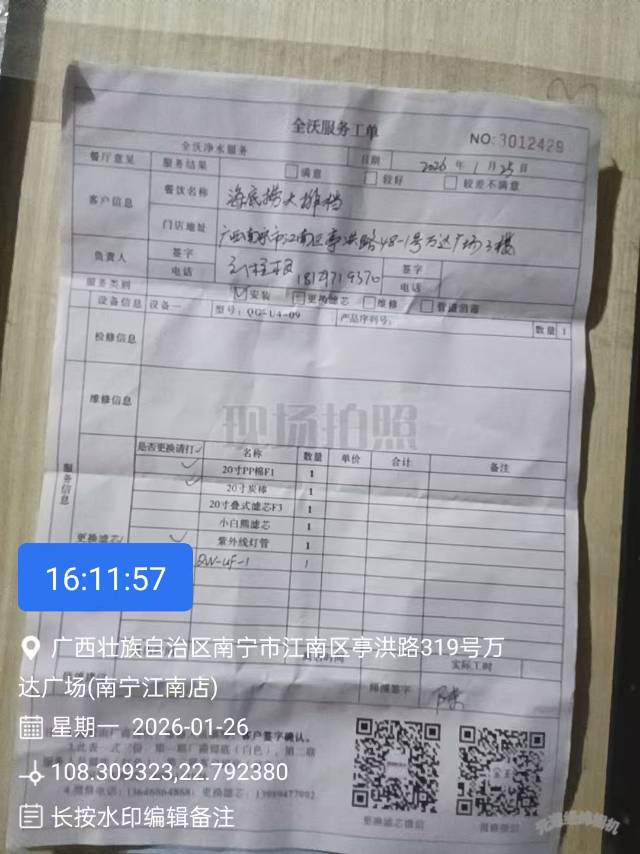 全沃服务工单
NO:3012429
全沃净水服务 日期 2026 年 1 月 25 日
餐厅意见 服务结果 满意 较好 较差不满意
客户信息 餐饮名称 海底捞大排档
门店地址 广西南宁市江南区亭洪路48-1号万达广场3楼
负责人 签字 签字
电话 电话
服务类别 安装 更换滤芯 维修 管道消毒
设备信息 设备一 型号：QG-U4-09 产品序列号： 数量 1
检修信息
维修信息
现场拍照
服务信息
是否更换请打✓ 名称 数量 单价 合计 备注
✓ 20寸PP棉F1 1
✓ 20寸炭棒 1
20寸叠式滤芯F3 1
小白熊滤芯 1
更换滤芯 ✓ 紫外线灯管 1
QW-UF-1 1
16:11:57
广西壮族自治区南宁市江南区亭洪路319号万
达广场(南宁江南店)
实际工时
签字
星期一 2026-01-26
客户签字确认。
108.309323,22.792380
长按水印编辑备注
更换滤芯微信